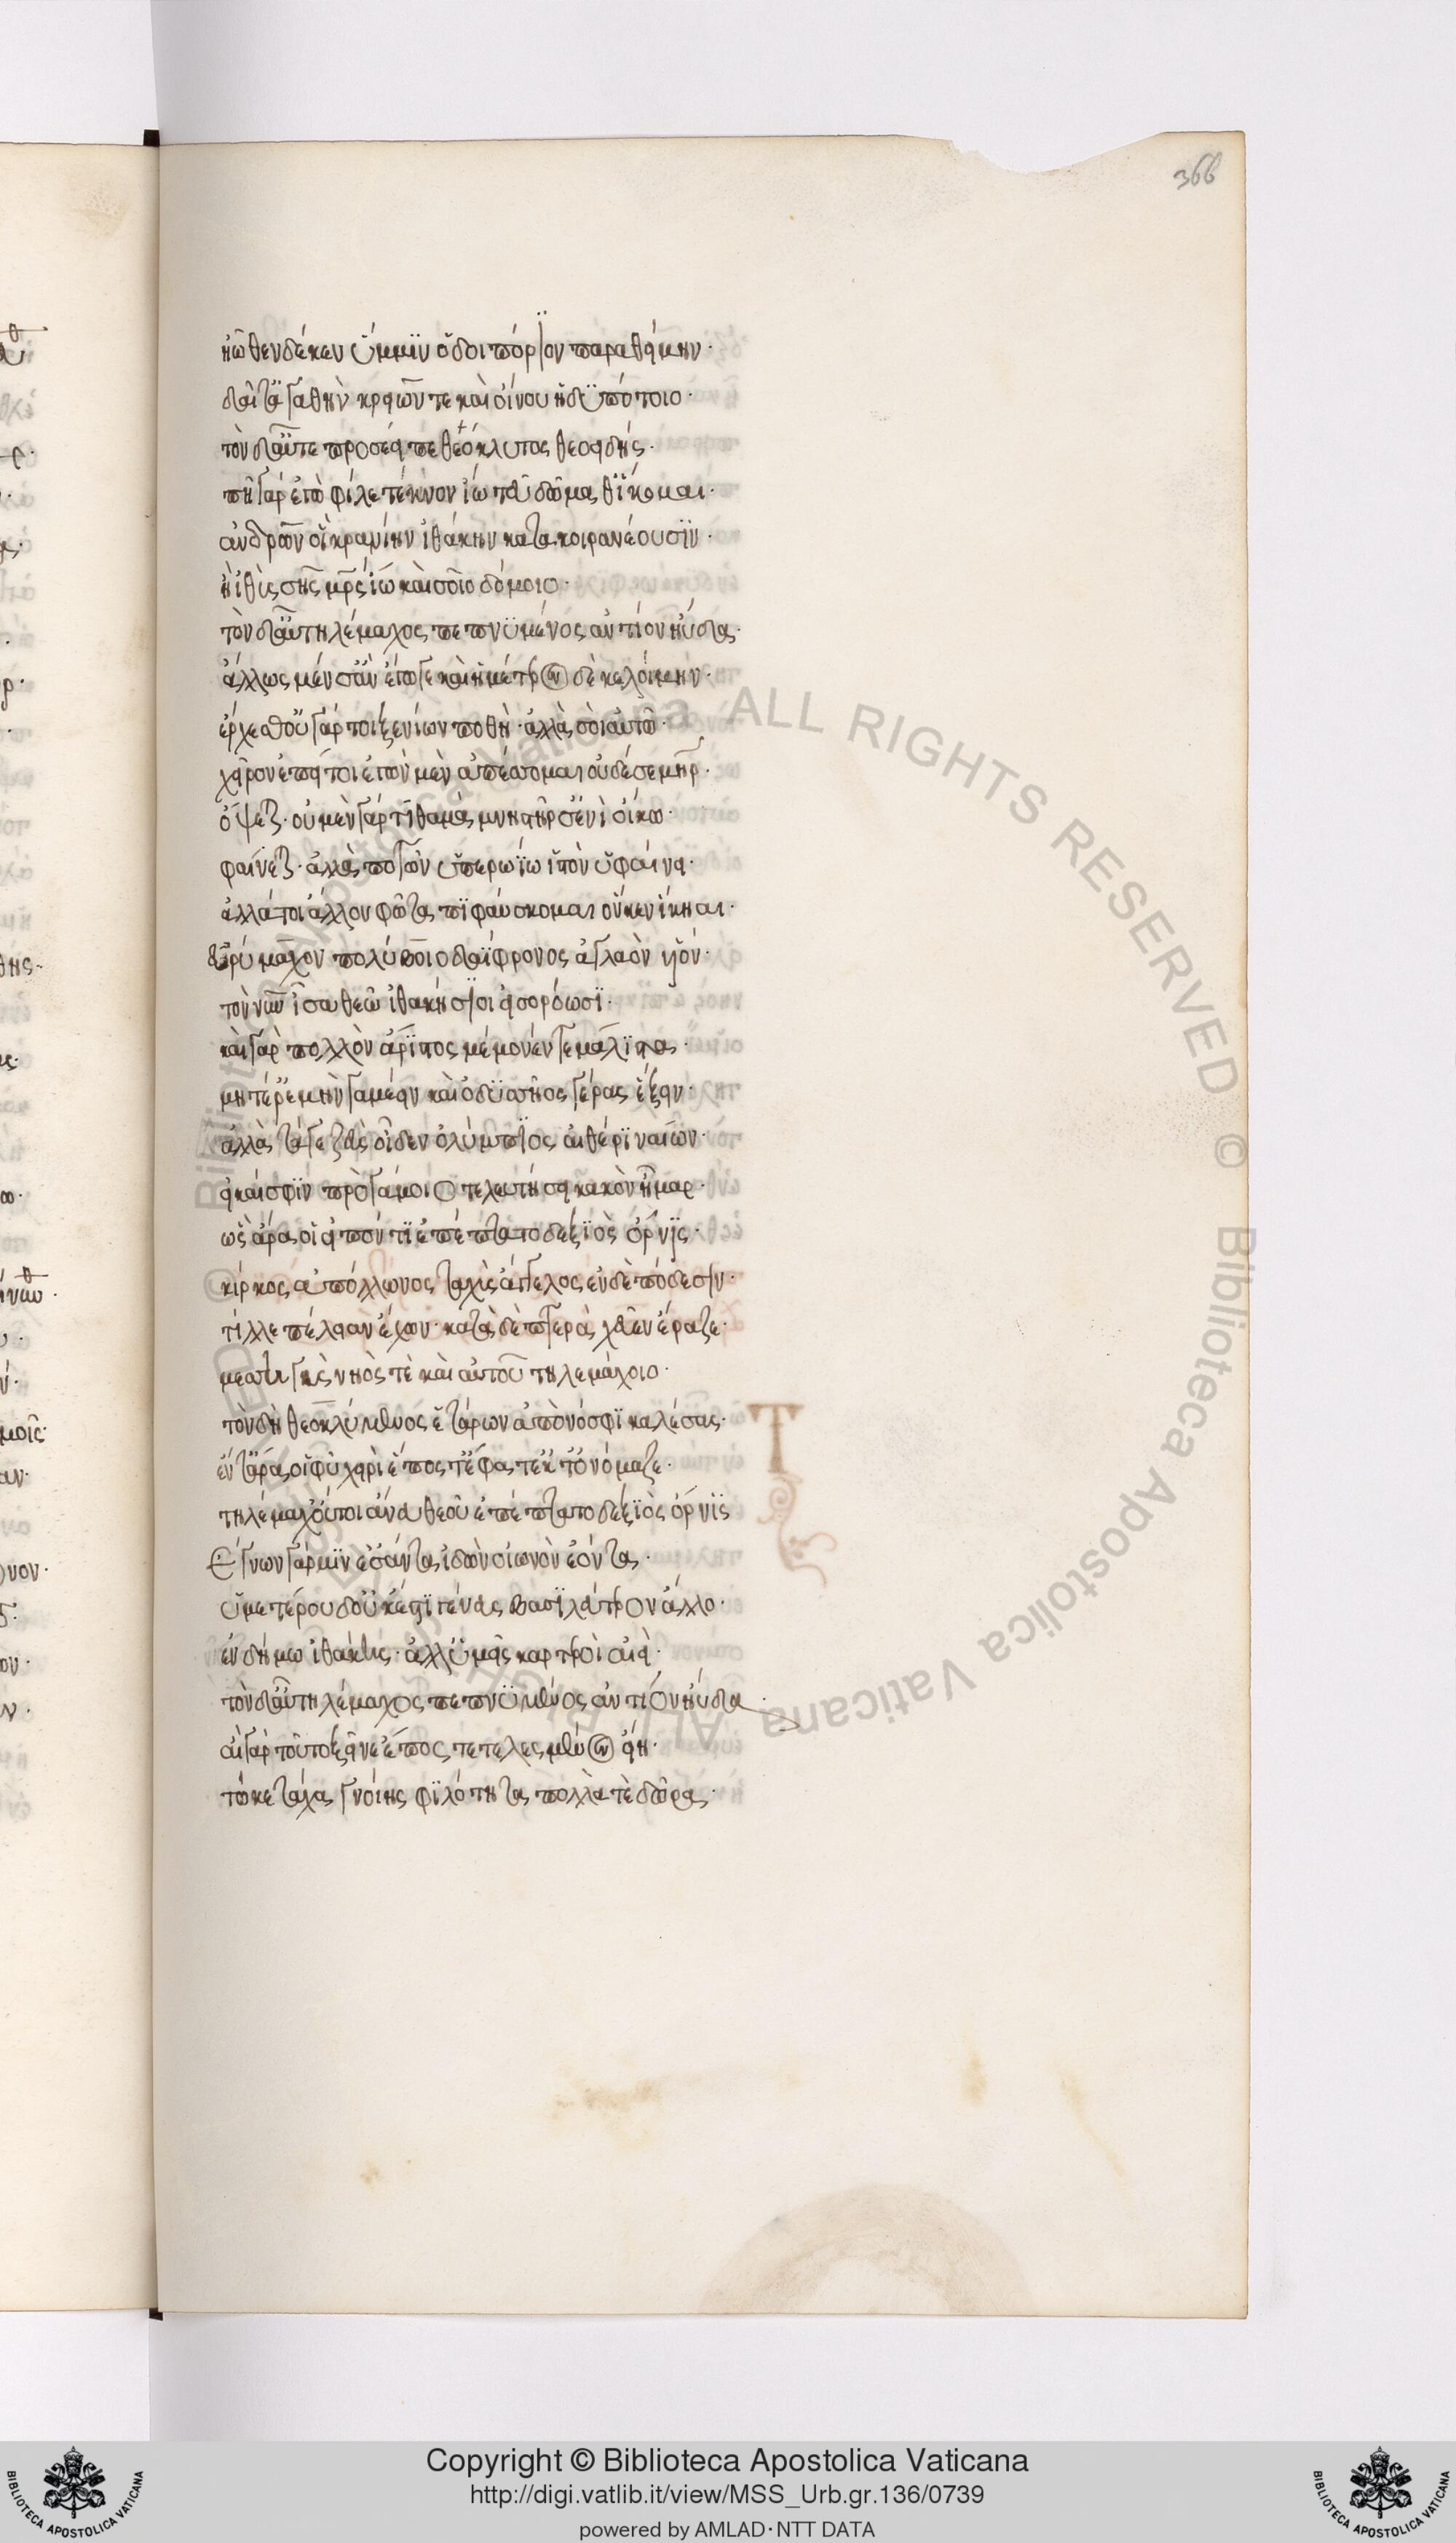 366
ἠῶθεν δέ κεν ὔμμϊν ὁδοιπόρϊον παραθείμην·
δαῖτ' ἀγαθὴν κρειῶν τε καὶ οἴνου ἡδϋπότοιο·
τὸν δ' αὖτε προσέειπε θεόκλυτος θεοειδής·
πῆ γὰρ ἐγὼ φίλε τέκνον ἴω τεῦ δώμαθ' ἵκομαι·
ἀνδρῶν οἳ κραναὴν ἰθάκην κατακοιρανέουσϊν·
ἢ ἰθὺς σῆς μρς ἴω καὶ σοῖο δόμοιο·
τὸν δ' αὖ τηλέμαχος πεπνϋμένος ἀντίον ηὔδα·
ἄλλως μέν σ' ἂν ἔγωγε καὶ ἡμέτερον δὲ κελοίμην·
ἔρχεσθ' οὐ γάρ τοι ξενίων ποθὴ· ἀλλὰ σοὶ αὐτῶ·
χεῖρον ἐπεί τοι ἐγὼν μὲν ἀπέσσομαι οὐδέ σε μηρ·
ὄψεται· οὐ μὲν γάρ τι θαμὰ μνηστῆρσ' ἐνὶ οἴκω·
φαίνεται· ἀλλ' ἀπὸ τῶν ὑπερωΐω ἱστὸν ὑφαίνει·
ἀλλά τοι ἄλλον φῶτα πϊφαύσκομαι ὅν κεν ἵκηαι·
εὐρύμαχον πολύβοιο δαΐφρονος ἀγλαὸν υἱόν·
τὸν νῦν ἶσα θεῶ ἰθακήσιοι εἰσορόωσϊ·
καὶ γὰρ πολλὸν ἄρϊστος μέμονέν γε μάλϊστα·
μητέρ' ἐμὴν γαμέειν καὶ ὀδϋσσῆος γέρας ἕξειν·
ἀλλὰ τά γε ζεὺς οἶδεν ὀλύμπϊος αἰθέρϊ ναίων·
εἰ καί σφϊν πρὸ γάμοιο τελευτήσει κακὸν ἦμαρ·
ὣς ἄρα οἱ εἰπόντϊ ἐπέπτατο δεξϊὸς ὄρνϊς·
κίρκος ἀπόλλωνος ταχὺς ἄγγελος ἐν δὲ πόδεσιν·
τίλλε πέλειαν ἔχων· κατὰ δὲ πτερὰ χεῦεν ἔραζε·
μεσσηγὺς νηὸς τὲ καὶ αὐτοῦ τηλεμάχοιο·
τὸν δὴ θεοκλύμενος ἑτάρων ἀπὸ νόσφϊ καλέσας·
ἔν τ' ἄρα οἱ φῦ χειρὶ ἔπος τ' ἔφατ' ἔκ τ' ὀνόμαζε·
τηλέμαχ' οὔ τοι ἄνευ θεοῦ ἐπέπτατο δεξϊὸς ὄρνϊς
ἔγνων γάρ μϊν ἐσάντα ἰδὼν οἰωνὸν ἐόντα·
ὑμετέρου δ' οὐκ ἔστϊ γένευς βασϊλεύτερον ἄλλο·
ἐν δήμω ἰθάκης· ἀλλ' ὑμεῖς καρτεροὶ αἰεὶ·
τὸν δ' αὖ τηλέμαχος πεπνϋμένος ἀντίον ηὔδα
αἲ γὰρ τοῦτο ξεῖνε ἔπος τετελεσμένον εἴη·
τῶ κε τάχα γνοίης φϊλότητα πολλά τὲ δῶρα·
Copyright © Biblioteca Apostolica Vaticana
http://digi.vatlib.it/view/MSS_Urb.gr.136/0739
powered by AMLAD·NTT DATA